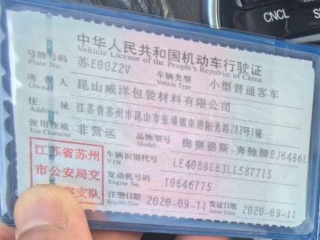 CNCL
中华人民共和国机动车行驶证
Vehicle License of the People's Republic of China
号牌号码 苏E80Z2V 车辆类型 小型普通客车
Plate No. Vehicle Type
所有人 昆山威洋包装材料有限公司
Owner
住址 江苏省苏州市昆山市张浦镇南港阳光路282号1幢
Address
使用性质 非营运 品牌型号 梅赛德斯-奔驰牌BJ6486L
Use Character Model
江苏省苏州
市公安局交
车辆识别代号 LE40B8EB3LL587715
VIN
发动机号码 10646775
Engine No.
注册日期 2020-09-11 发证日期 2020-09-11
Register Date Issue Date